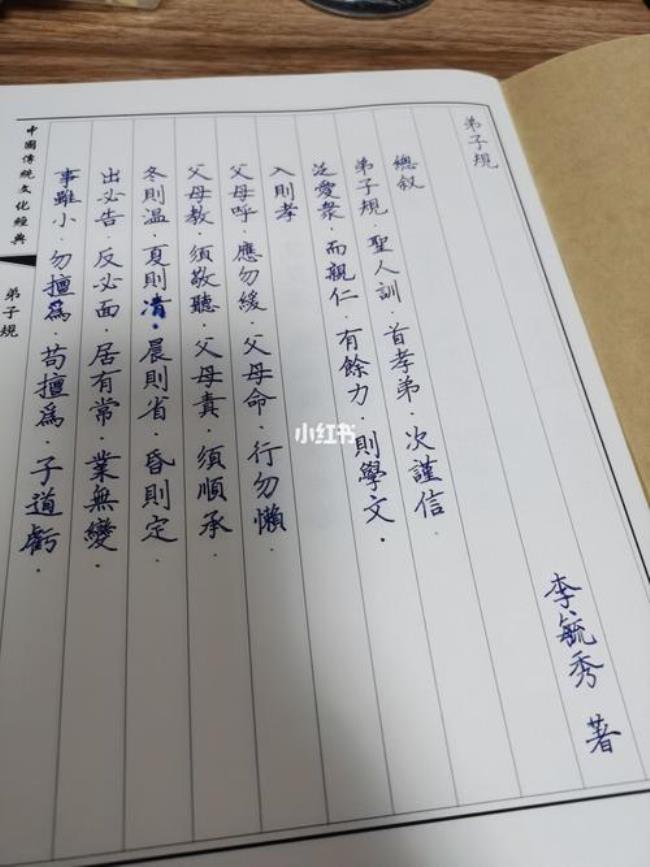 弟子規
李毓秀 著
總叙
弟子規·聖人訓·首孝弟·次謹信·
泛愛衆·而親仁·有餘力·則學文·
入則孝
父母呼·應勿緩·父母命·行勿懶·
父母教·須敬聽·父母責·須順承·
冬則温·夏則凊·晨則省·昏則定·
出必告·反必面·居有常·業無變·
事雖小·勿擅爲·苟擅爲·子道虧·
中國傳統文化經典
弟子規
小红书